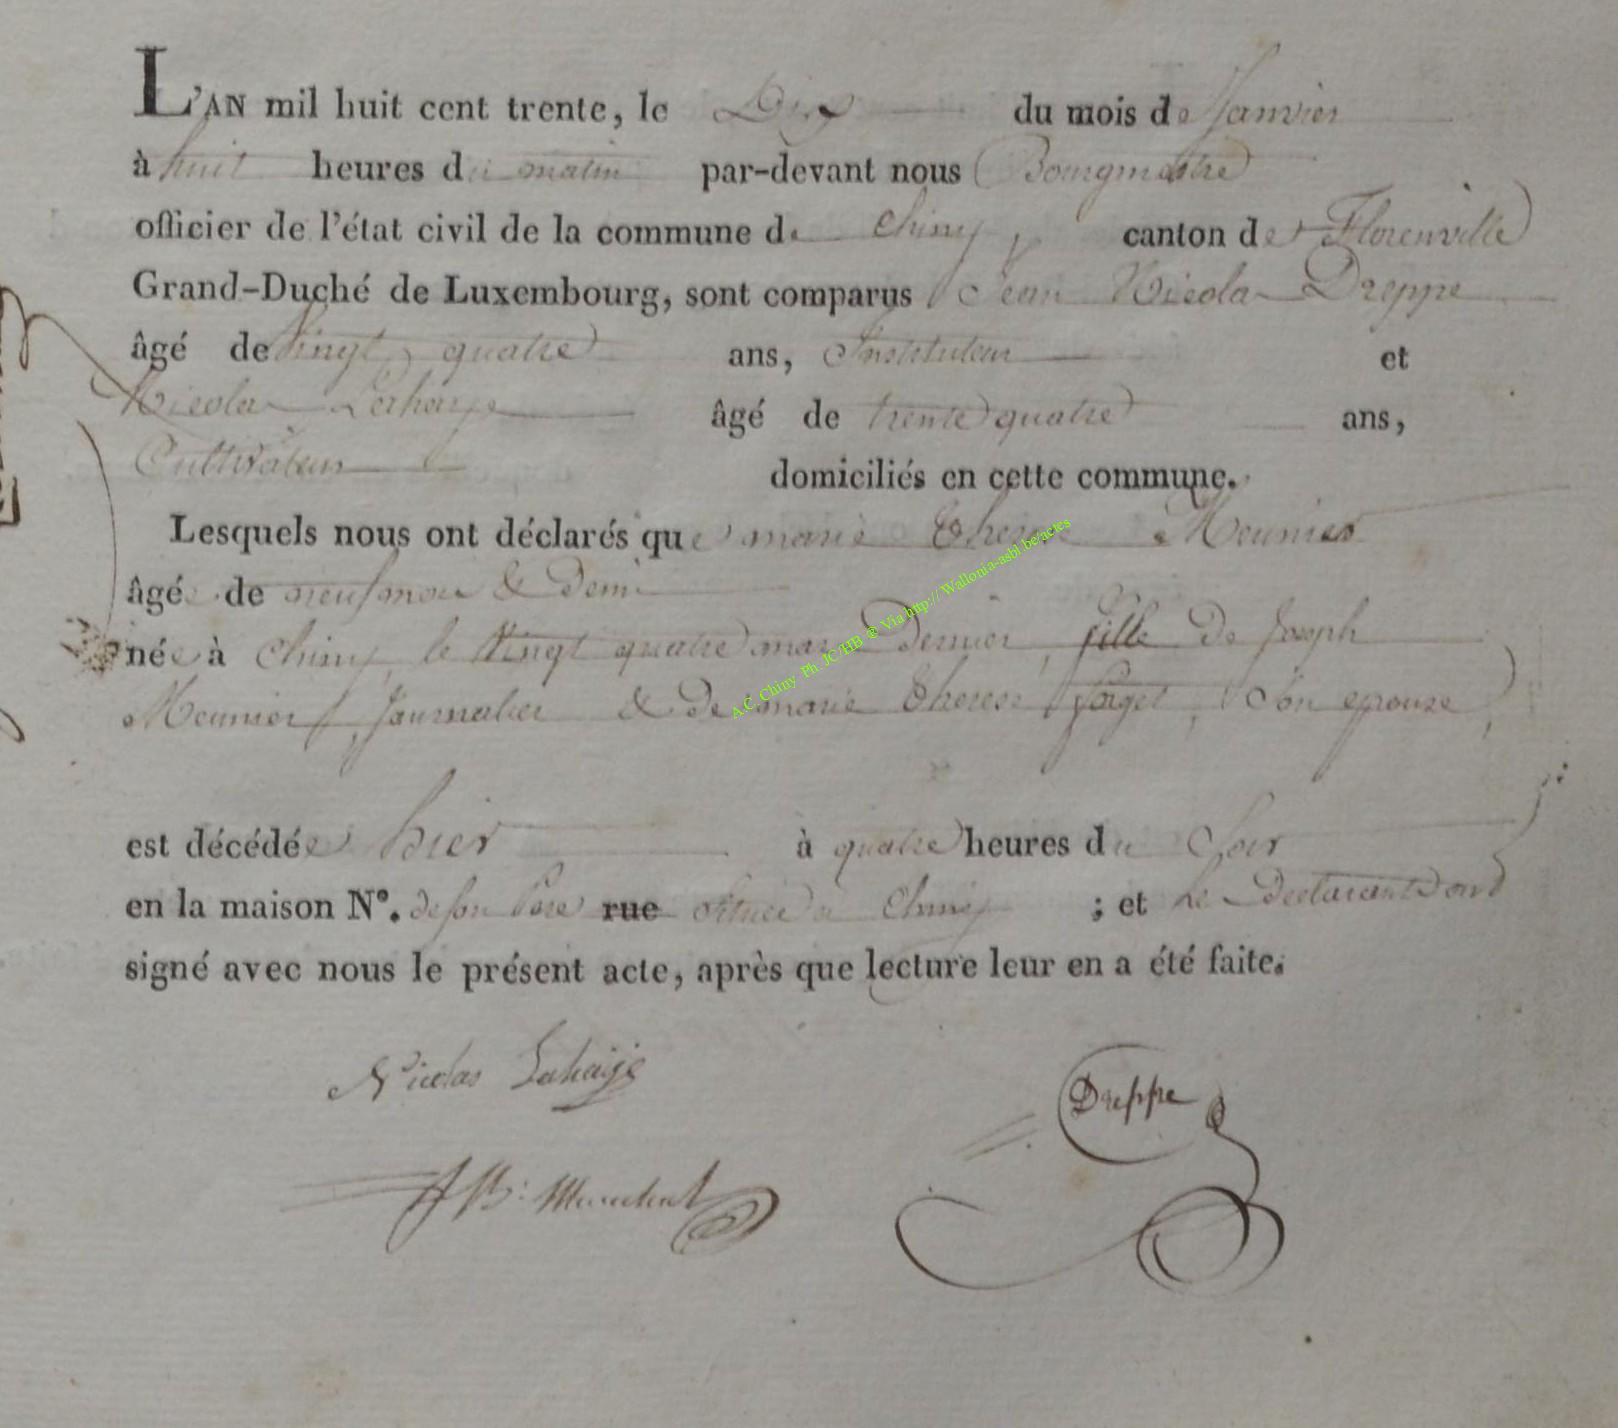 L'AN mil huit cent trente, le Dix du mois de Janvier
à huit heures du matin par-devant nous Bourgmestre
officier de l'état civil de la commune de Chiny, canton de Florenville
Grand-Duché de Luxembourg, sont comparus Jean Nicolas Dreppe
âgé de Vingt quatre ans, Instituteur et
Nicolas Lahaye âgé de trente quatre ans,
Cultivateur domiciliés en cette commune.
Lesquels nous ont déclarés que marie Therese Meunier
âgée de neuf mois & Demi
née à Chiny, le Vingt quatre mars Dernier, fille De Joseph
Meunier, Journalier & De marie Therese Forget, Son epouse,
est décédée hier à quatre heures du Soir
en la maison N°. de son Pere rue Située a Chiny ; et Les Declarants ont
signé avec nous le présent acte, après que lecture leur en a été faite.
Nicolas Lahaije
Dreppe
A.C. Chiny Ph. JC HB ® Via http:// Wallonia-asbl.be/actes